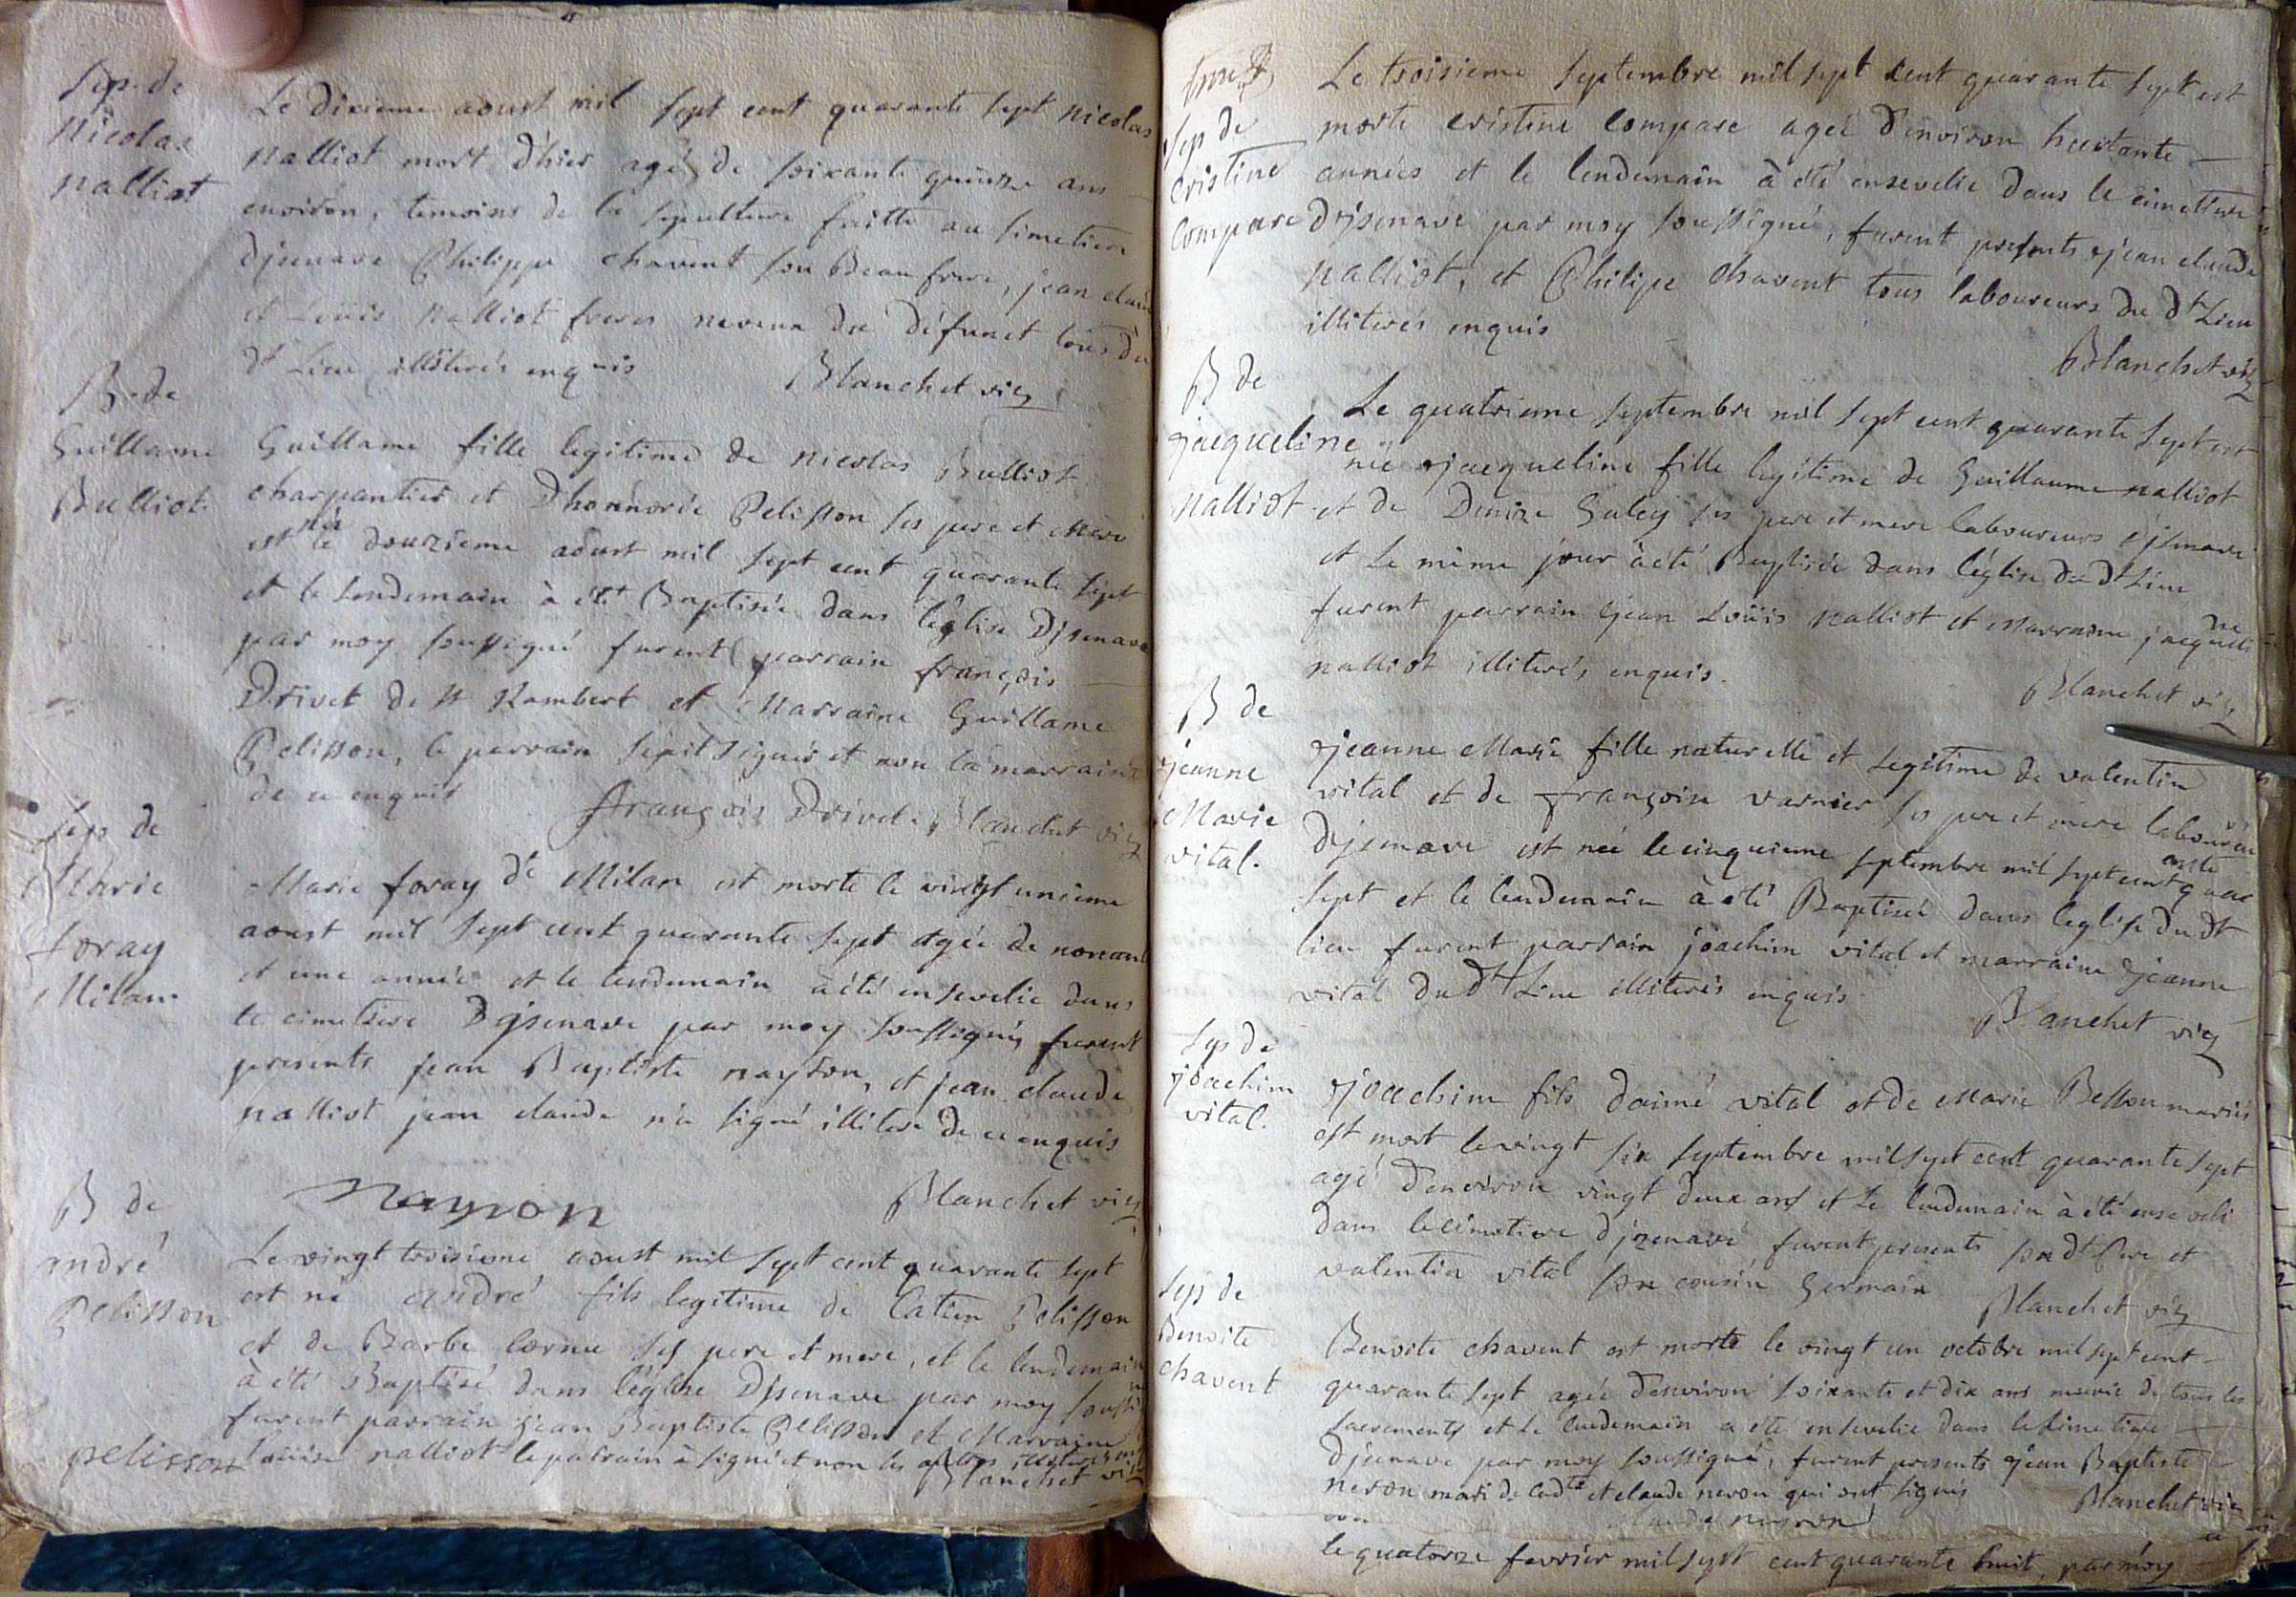 Sep. de
Nicolas
nalliot
Le dixieme aoust mil sept cent quarante sept nicolas
nalliot mort d'hier agé de soixante quinze ans
environ, temoins de la sepulture faitte au simetiere
Djsenave Philippe chavent son Beau frere, jean clau
et Louis nalliot freres neveux du défunct tous du
dt Lieu illiterés enquis Blanchet vic
B. de
Guillame
Bulliot.
Guillame fille legitime de nicolas Bulliot
charpantier et Dhonnorée Pelisson ses pere et mere
est née le douzieme aoust mil sept cent quarante sept
et le lendemain à été Baptisée dans l'église Djsenave
par moy soussigné furent parrain françois
Drivet de st Rambert et Marraine Guillame
Pelisson, le parrain s'est signé et non la marraine
de ce enquis françois Drivet. Blanchet vic
Sep de
Marie
foray
Milan.
Marie foray dt Milan est morte le vingt unieme
aoust mil sept cent quarante sept agée de nonant
et une année et le lendemain à été ensevelie dans
le cimetiere Djsenave par moy soussigné, furent
presents jean Baptiste nayron, et jean claude
nalliot jean claude n'a signé illitere de ce enquis
Nayron Blanchet vic
B de
andré
Pelisson
Le vingt troisieme aoust mil sept cent quarante sept
est né andré fils legitime de Catien Pelisson
et de Barbe Cornu ses pere et mere, et le lendemain
à été Baptisé dans l'église Djsenave par moy soussi
furent parrain jean Baptiste Pelisson et Marraine
Louise nalliot le parrain à signé et non les autres illiterés enq
pelisson Blanchet vic
Sep de
Cristine
Compare
Le troisieme septembre mil sept cent quarante sept est
morte cristine Compare agée d'environ huitante
années et le lendemain à été ensevelie dans le cimetiere
Djsenave par moy soussigné, furent presents jean claude
nalliot, et Philipe chavent tous laboureurs du dt Lieu
illiterés enquis
Blanchet vic
B de
jacqueline
nalliot
Le quatrieme septembre mil sept cent quarante sept est
née jacqueline fille legitime de Guillaume nalliot
et de Denize Guley ses pere et mere laboureurs Djsenave
et le même jour à été Baptisée dans l'église du dt Lieu
furent parrain jean Louis nalliot et Marraine jacqueline
nalliot illiterés, enquis.
Blanchet vic
B de
jeanne
Marie
vital.
jeanne Marie fille naturelle et legitime de valentin
vital et de françoise varnier ses pere et mere laboure
Djsenave est née le cinquieme septembre mil sept cent quarante
sept et le lendemain à été Baptisée dans l'eglise du dt
lieu furent parrain joachim vital et marraine jeanne
vital du dt Lieu illiterés enquis
Blanchet vic
Sep de
joachim
vital.
joachim fils daimé vital et de Marie Besson mariés
est mort le vingt six septembre mil sept cent quarante sept
agé d'environ vingt deux ans et le lendemain à été enseveli
dans le cimetiere djzenave furent presents son dt Pere et
valentin vital son cousin Germain Blanchet vic
Sep de
Benoite
chavent
Benoite chavent est morte le vingt un octobre mil sept cent
quarante sept agée d'environ soixante et dix ans munie de tous les
sacrements et le lendemain a été ensevelie dans le simetiere
Djsenave par moy soussigné, furent presents jean Baptiste
neron mari de ladte et claude neron qui ont signés
Blanchet vic
claude neyron
le quatorze fevrier mil sept cent quarante huit, par moy